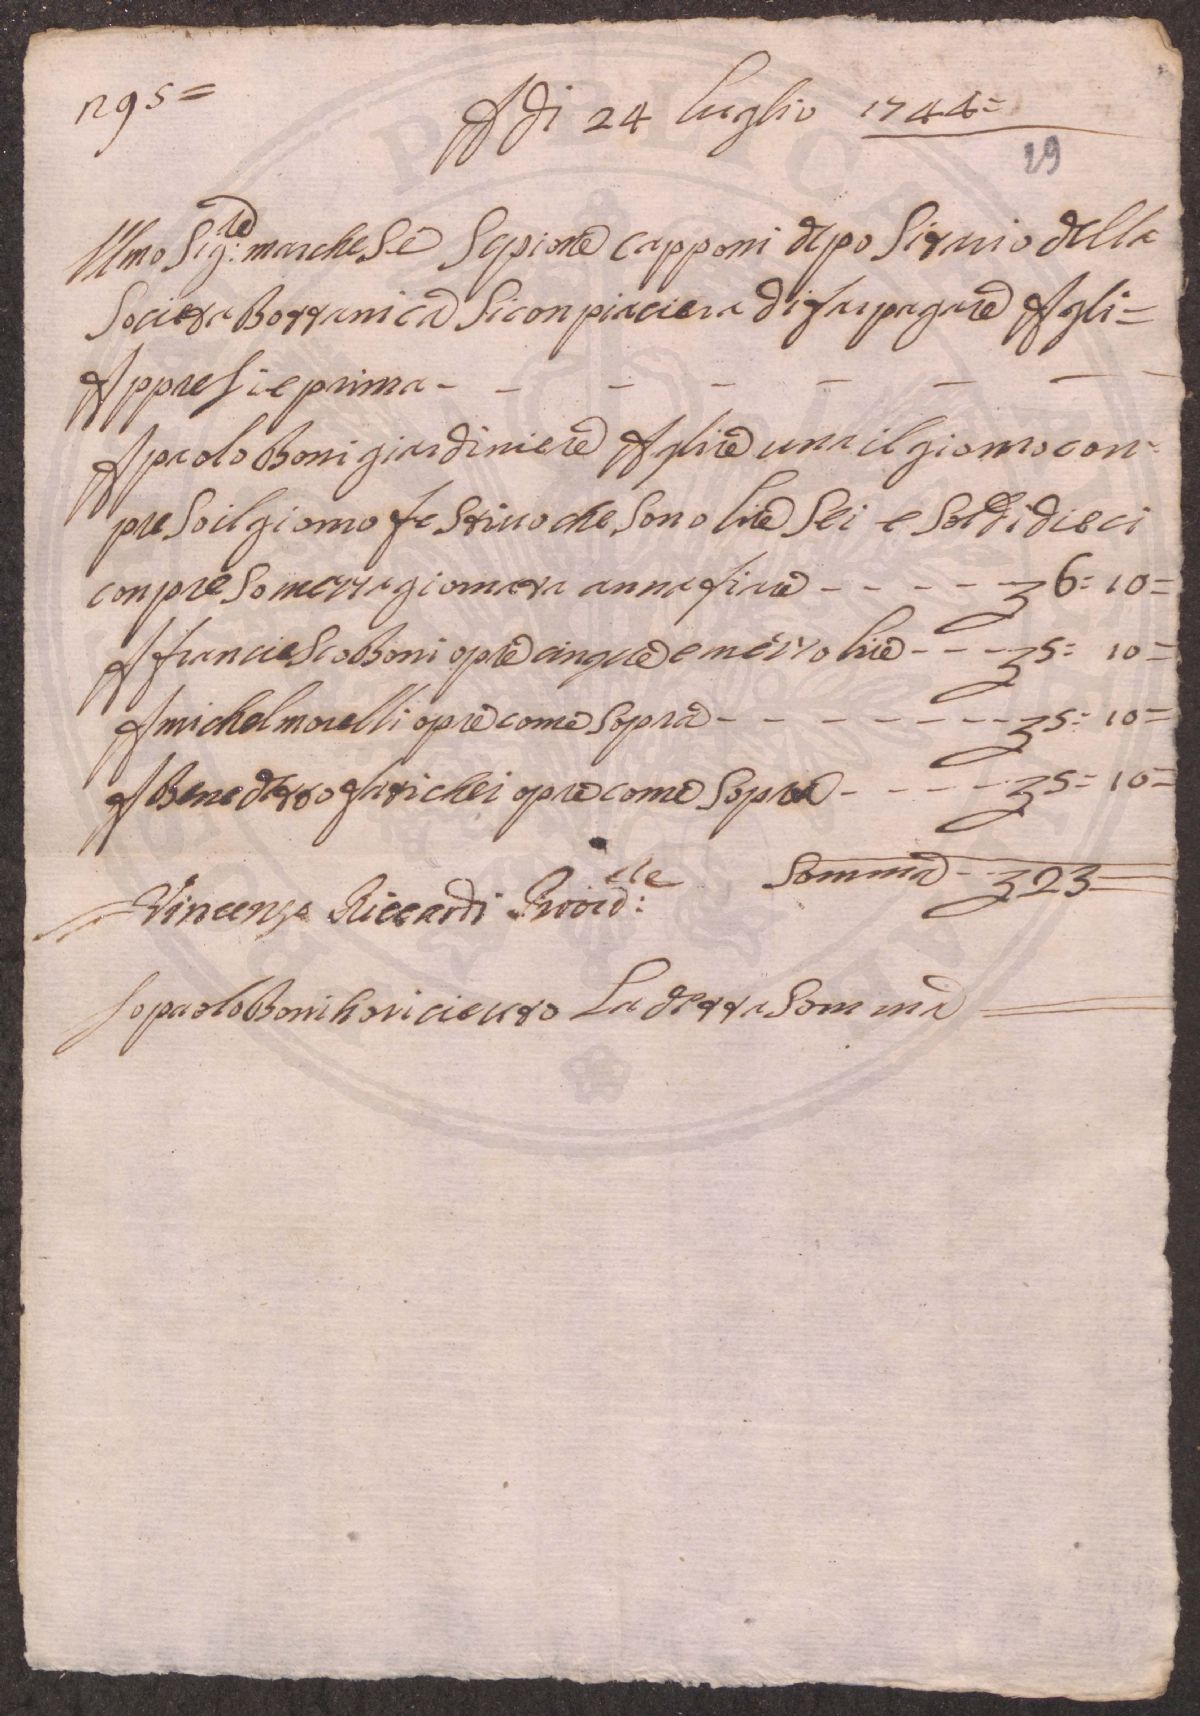 n 95=
A di 24 luglio 1744=
29
Illmo Sig:re marchese Scpione capponi depositario della
Societa Bottanica Si conpiaciera di far pagare Agli=
Appresi e prima - - - - - - -
A paolo Boni giardiniere A lire una il giorno con=
preso il giorno festivo che sono lire Sei e Soldi dieci
conpreso mezza giornata annafiare - - - - - 6= 10=
A franciesco Boni opre cinque e mezzo lire - - - 5= 10=
A michel morelli opre come sopra - - - - - - - - 5= 10=
A Benedetto opre come sopra - - - - - 5= 10=
Somma - - 23=
Vincenzo Riccardi Proved:re
Io paolo Boni ho ricieuto La detta Somma